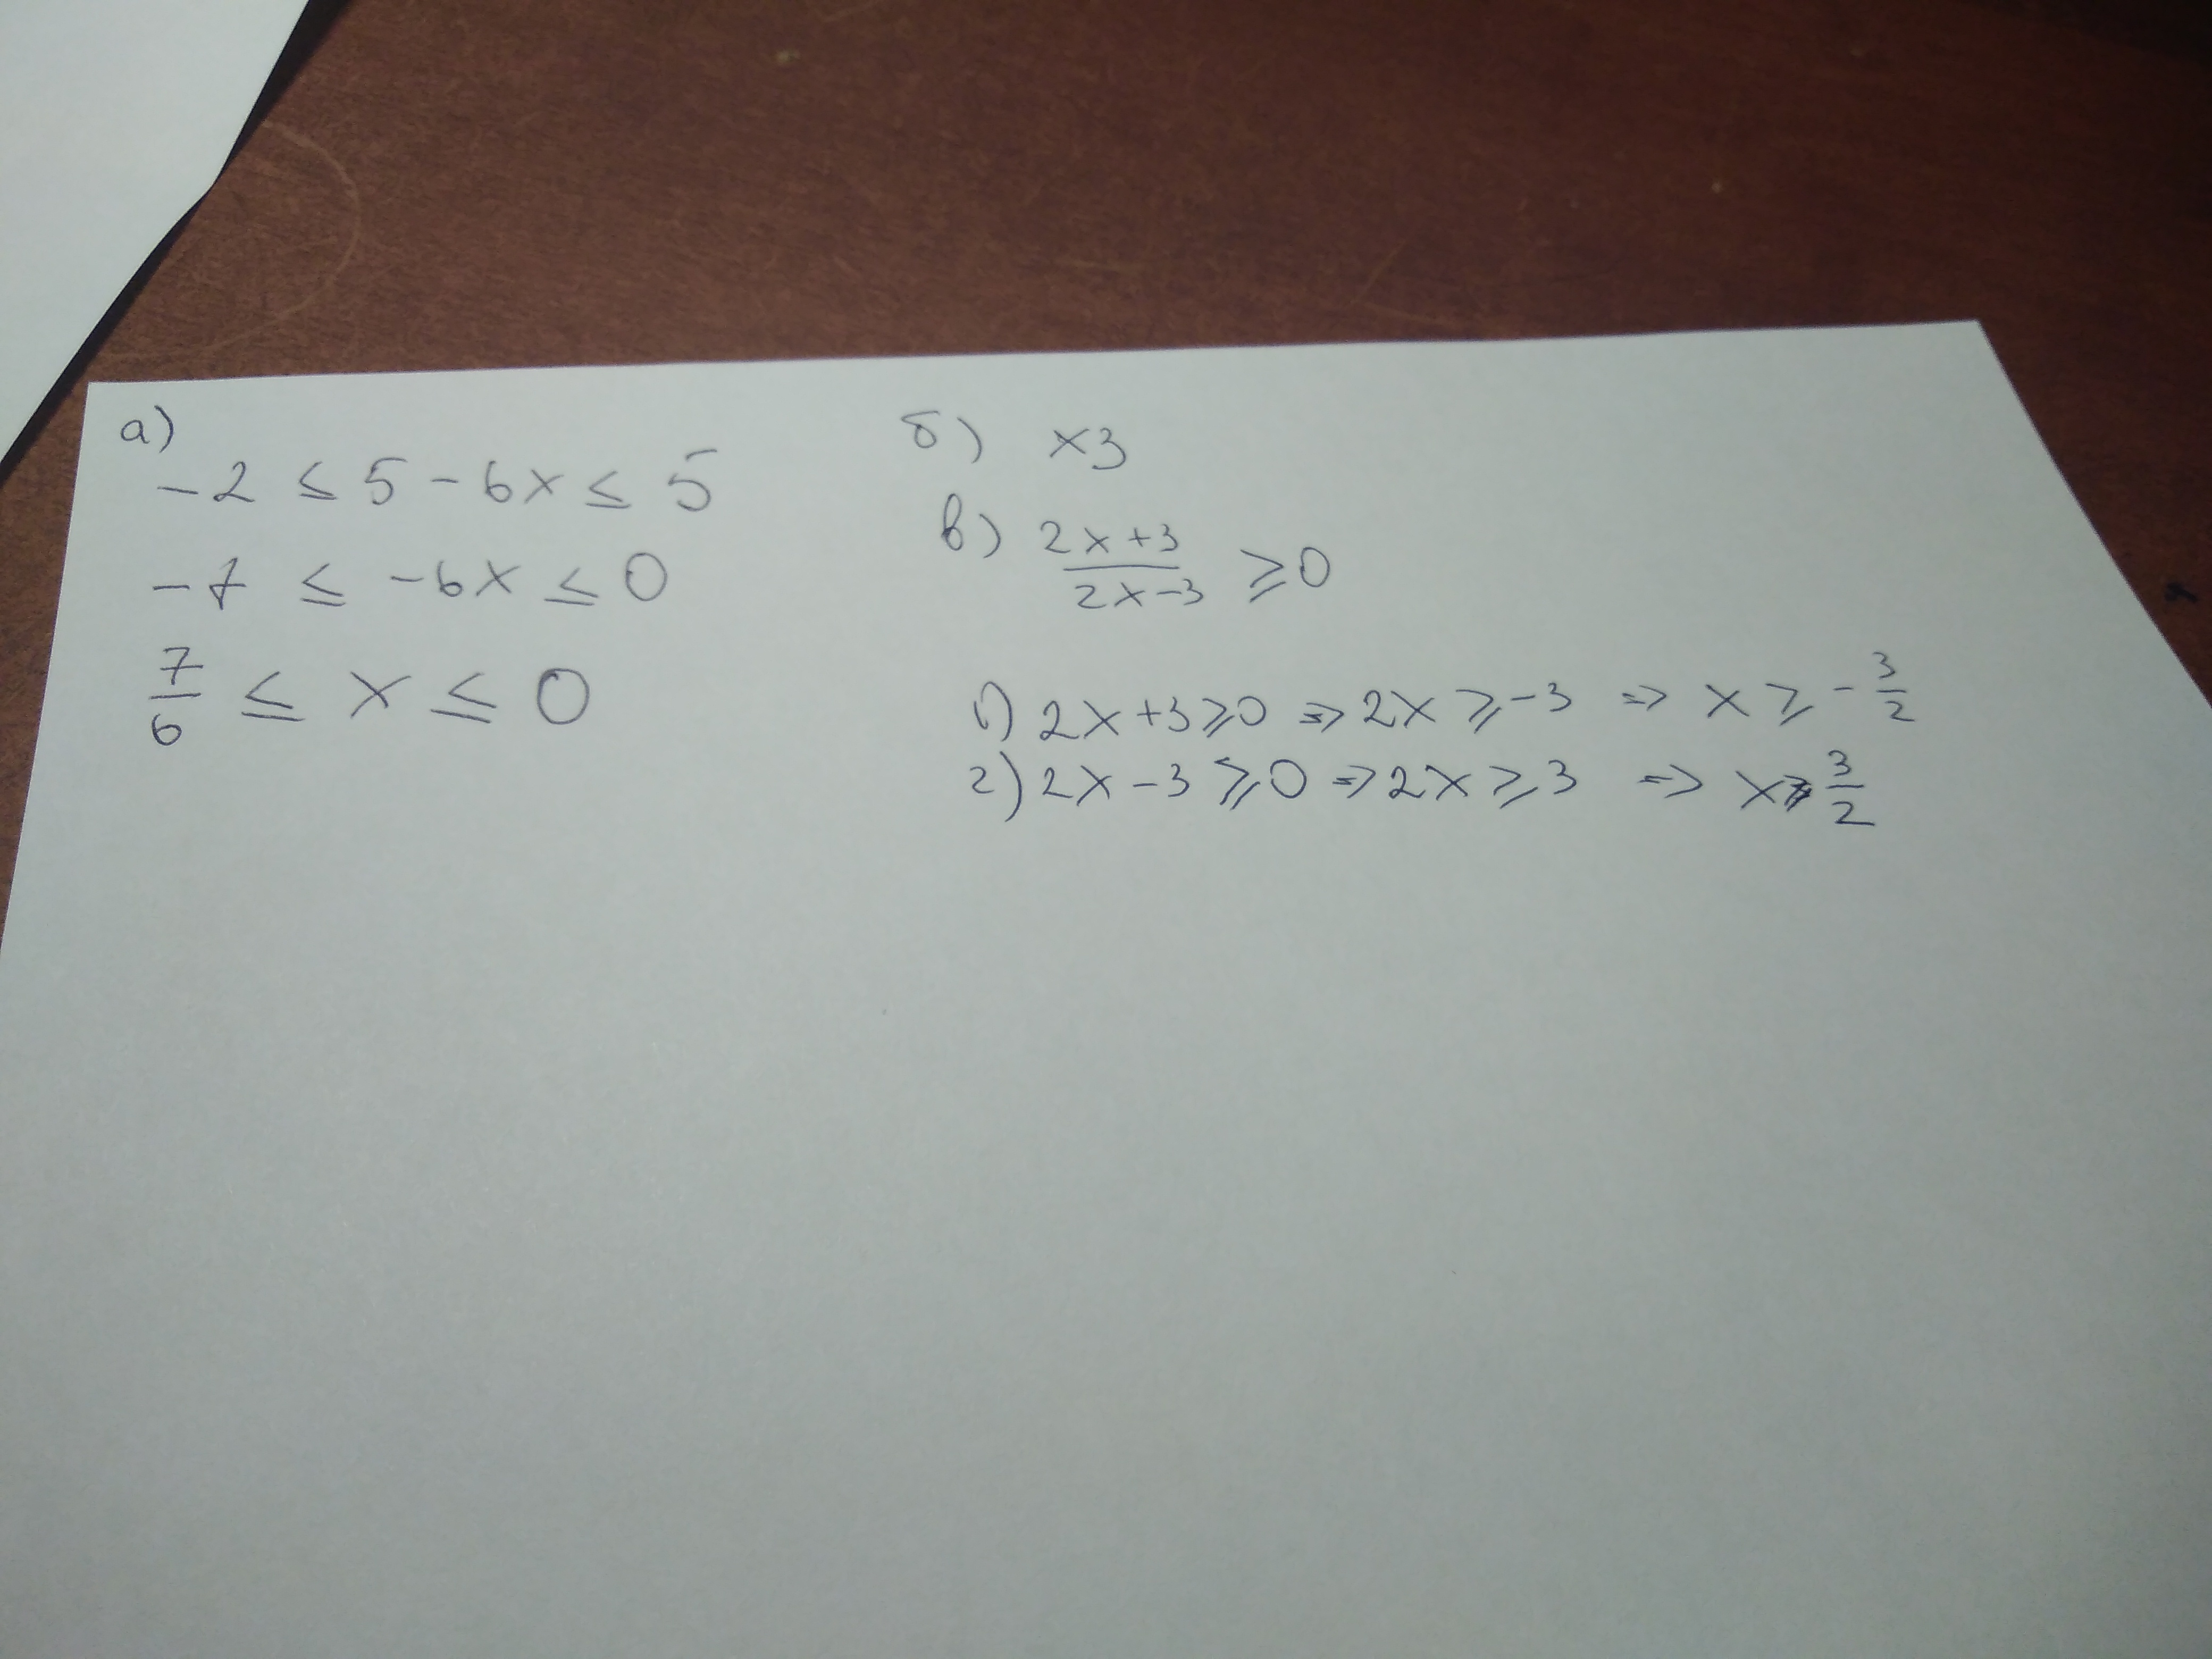 а)
-2 ≤ 5 - 6x ≤ 5
-7 ≤ -6x ≤ 0
7/6 ≤ x ≤ 0
б) x3
в) (2x+3)/(2x-3) ≥ 0
1) 2x+3 ≥ 0 => 2x ≥ -3 => x ≥ -3/2
2) 2x-3 ≥ 0 => 2x ≥ 3 => x > 3/2